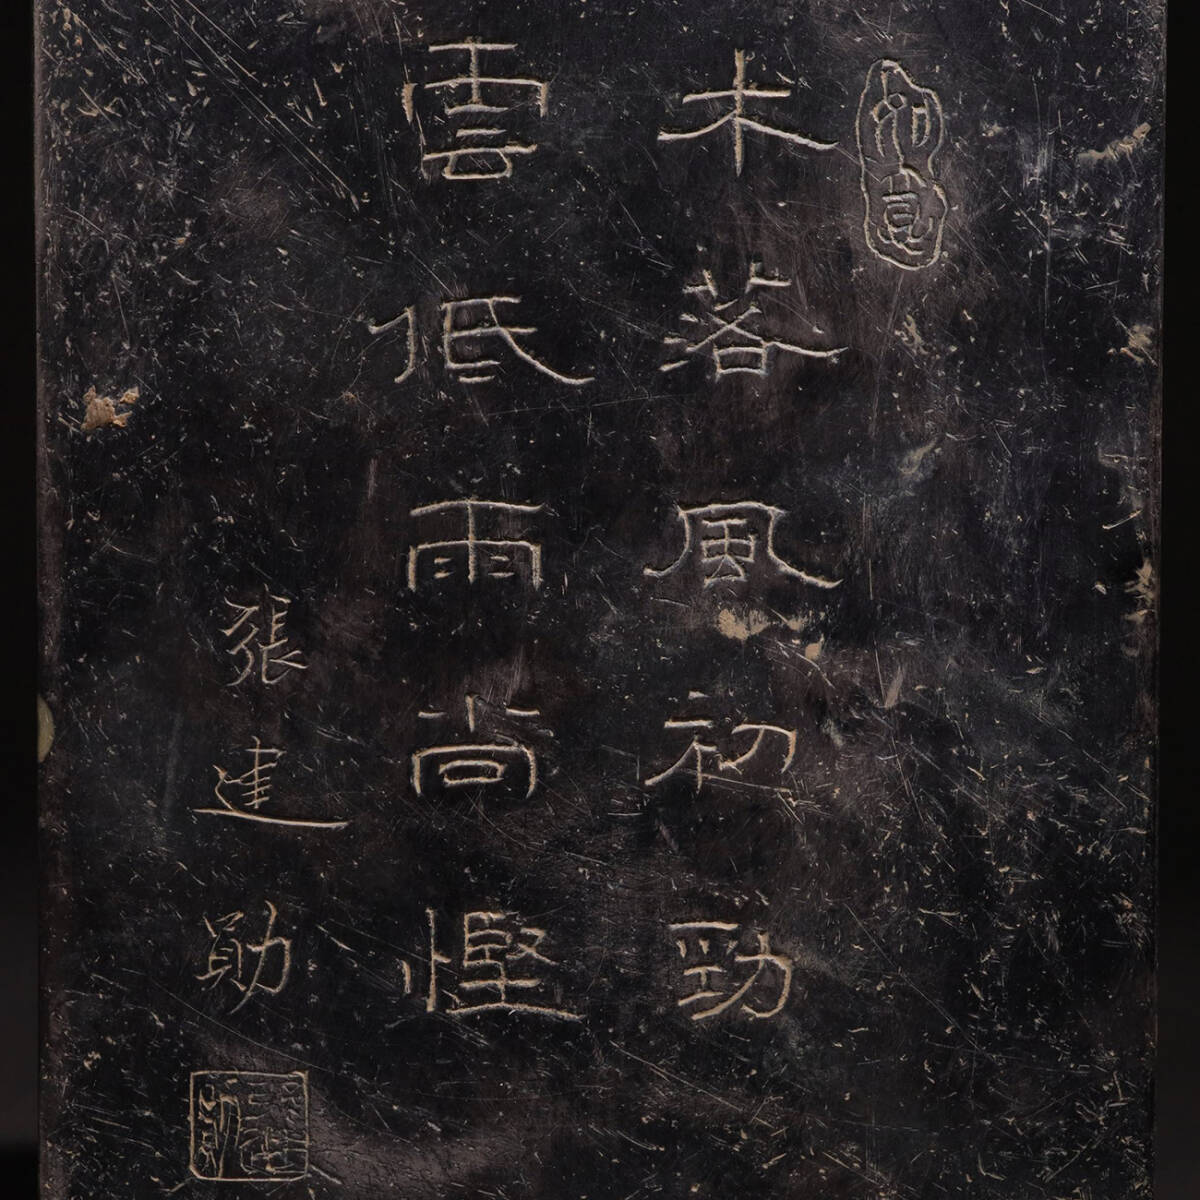 木落風初勁
雲低雨尚慳
張建勛